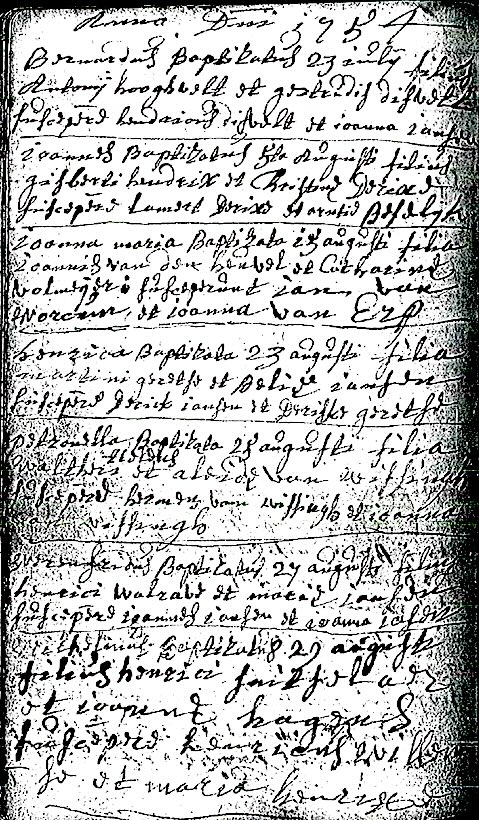 Anno Dni 1754
Bernardus Baptisatus 23 iulij filius
Antonij hoogevelt et gertrudis disvelt
susceperẽ hendricus disvelt et ioanna ianssen
ioannes Baptisatus 5ta Augusti filius
gisberti hendrix et Christina Derixe
susceperẽ Lamert Derixe et arntie
ioanna maria Baptisata 15 augusti filia
ioannis van den heuvel et Catharina
susceperunt ian van
et ioanna van Erp
henrica Baptisata 23 augusti filia
martini geretse et Petie iansen
susceperẽ Derick iansen et Deriske geretse
petronella Baptisata 25 augusti filia
Waltheri et aleide van wissingh
susceperẽ hermen van wissingh et ioanna
wissingh
Wernfridus Baptisatus 27 augusti filius
henrici walrave et maria iansen
susceperẽ ioannes iansen et ioanna iansen
Baptisatus 29 augusti
filius henrici
et ioanna hagens
susceperẽ henricus willem
se et maria henrixe